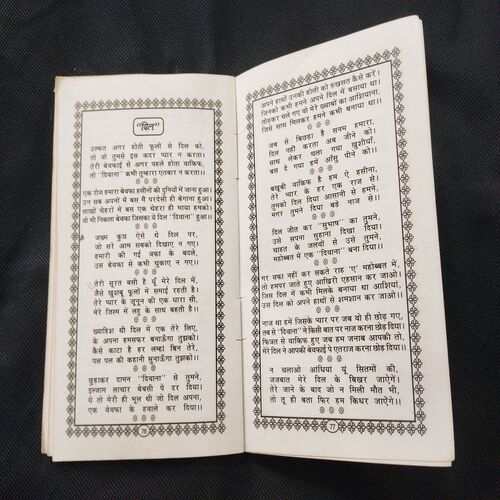 "दिल"
उल्फत अगर होती फूलों से दिल को,
तो वो तुमसे इस कदर प्यार न करता।
तेरी बेवफाई में अगर पहले होता वाकिफ,
तो "दिवाना" कभी तुम्हारा एतबार न करता।।
एक रोज हमारा बेवफा हसीनों की दुनियाँ में जाना हुआ।
उन सब अपनों में बस मैं परदेसी ही बेगाना हुआ।
लाखों चेहरों में बस एक चेहरा ही भाया हमको।
वो भी निकला बेवफा जिसका ये दिल "दिवाना" हुआ।।
जख्म कुछ ऐसे थे दिल पर,
जो सरे आम सबको दिखाए न गए।
हमारी की गई वफा के बदले,
उस बेवफा से कभी चुकाए न गए।।
तेरी सूरत बसी है यूँ मेरे दिल में,
जैसे खुशबू फूलों में समाई रहती है।
तेरे प्यार के जूनून की एक धारा सी,
मेरे जिस्म में लहू के साथ बहती है।।
ख्वाहिश थी दिल में एक तेरे लिए,
के अपना हमसफर बनाऊँगा तुझको।
कैसे काटा है हर लम्हा बिन तेरे,
पल पल की कहानी सुनाऊँगा तुझको।।
छुड़ाकर दामन "दिवाना" से तुमने,
इल्जाम लाचार बेबसी पे दर दिया।
ये तो मेरी ही भूल थी जो दिल अपना,
एक बेवफा के हवाले कर दिया।।
76
अपने हाथों उनकी डोली को रुखसत कैसे करें।
जिनको कभी हमने अपने दिल में बसाया था।
तोड़कर चले गए वो मेरे ख्वाबों का आशियाना,
जिसे साथ मिलकर हमने कभी बनाया था।।
जब से बिछड़ा है सनम हमारा,
दिल नहीं करता अब जीने को।
साथ लेकर चला गया खुशीयाँ,
बस दे गया हमें आँसू पीने को।।
बखूबी वाकिफ है हम ऐ हसीना,
तेरे प्यार के हर एक राज से।
तुमको दिल दिया आसानी से हमने,
मगर तुमने दिया बड़े नाज से।।
दिल जीत कर "सुभाष" का तुमने,
उसे सपना सुहाना दिखा दिया।
चाहत के जलवों से उसे तुमने,
महोब्बत में एक "दिवाना" बना दिया।।
गर वफा नहीं कर सकते राह 'ए' महोब्बत में,
तो हमपर जाते हुए आखिरी एहसान कर जाओ।
जिस दिल में कभी मिलके बनाया था आशियाँ,
उस दिल को अपने हाथों से शमशान कर जाओ।।
नाज था हमें जिसके प्यार पर जब वो ही छोड़ गए,
तब से "दिवाना" ने किसी बात पर नाज करना छोड़ दिया।
फित्रत से वाकिफ हुए जब हम जनाब आपकी तो,
मेरे दिल ने आपकी बेवफाई पे एतराज करना छोड़ दिया।।
न चलाओ आंधियां यूं सितमों की,
जजबात मेरे दिल के बिखर जाऐंगे।
तेरे जाने के बाद जो न मिली मौत भी,
तो तू ही बता फिर हम किधर जाऐंगे।।
77